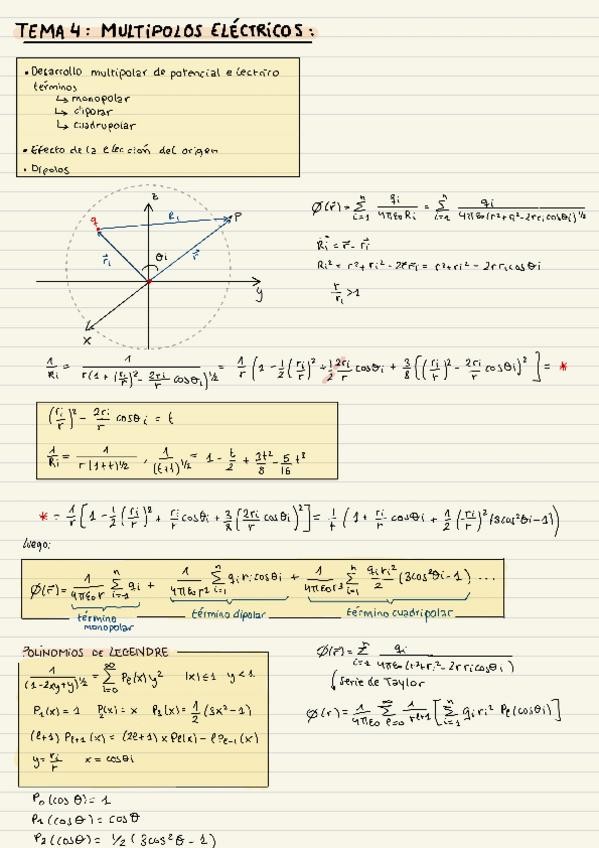 TEMA 4: MULTIPOLOS ELÉCTRICOS:
• Desarrollo multipolar de potencial electrico
términos
↳ monopolar
↳ dipolar
↳ cuadrupolar
• Efecto de la elección del origen
• Dipolos
z
q
Ri
P
r⃗i
θi
r⃗
y
x
Φ(r⃗) = Σ_{i=1}^{n} qi/(4πε₀Ri) = Σ_{i=1}^{n} qi/(4πε₀(r²+ri²-2rri cosθi)^{1/2})
R⃗i = r⃗ - r⃗i
Ri² = r²+ri² - 2r⃗r⃗i = r²+ri² - 2rri cosθi
r/ri > 1
1/Ri = 1/(r(1+(ri/r)² - 2ri/r cosθi)^{1/2}) = 1/r (1 - 1/2 (ri/r)² + 1/2 2ri/r cosθi + 3/8 [(ri/r)² - 2ri/r cosθi)²] = *
(ri/r)² - 2ri/r cosθi = t
1/Ri = 1/(r(1+t)^{1/2}) , 1/(t+1)^{1/2} = 1 - t/2 + 3t²/8 - 5/16 t³
* = 1/r [1 - 1/2 (ri/r)² + ri/r cosθi + 3/8 (2ri/r cosθi)²] = 1/r (1 + ri/r cosθi + 1/2 (ri/r)² (3cos²θi-1))
luego:
Φ(r⃗) = 1/(4πε₀r) Σ_{i=1}^{n} qi + 1/(4πε₀r²) Σ_{i=1}^{n} qi ri cosθi + 1/(4πε₀r³) Σ_{i=1}^{n} qi ri²/2 (3cos²θi - 1) ...
término monopolar
término dipolar
término cuadripolar
POLINOMIOS DE LEGENDRE
1/(1-2xy+y²)^{1/2} = Σ_{l=0}^{∞} Pℓ(x) y² |x| ≤ 1 y < 1
P₁(x) = 1 P₂(x) = x P₂(x) = 1/2 (3x²-1)
(ℓ+1) Pℓ+1(x) = (2ℓ+1) x Pℓ(x) - ℓPℓ-1(x)
y = ri/r x = cosθi
Φ(r⃗) = Σ_{i=1} qi/(4πε₀(r²+ri² - 2rri cosθi)
Serie de Taylor
Φ(r) = 1/(4πε₀) Σ_{ℓ=0}^{∞} 1/r^{ℓ+1} [Σ_{i=1}^{n} qi ri² Pℓ(cosθi)]
P₀(cos θ) = 1
P₁(cosθ) = cosθ
P₂(cosθ) = 1/2 (3cos²θ - 1)